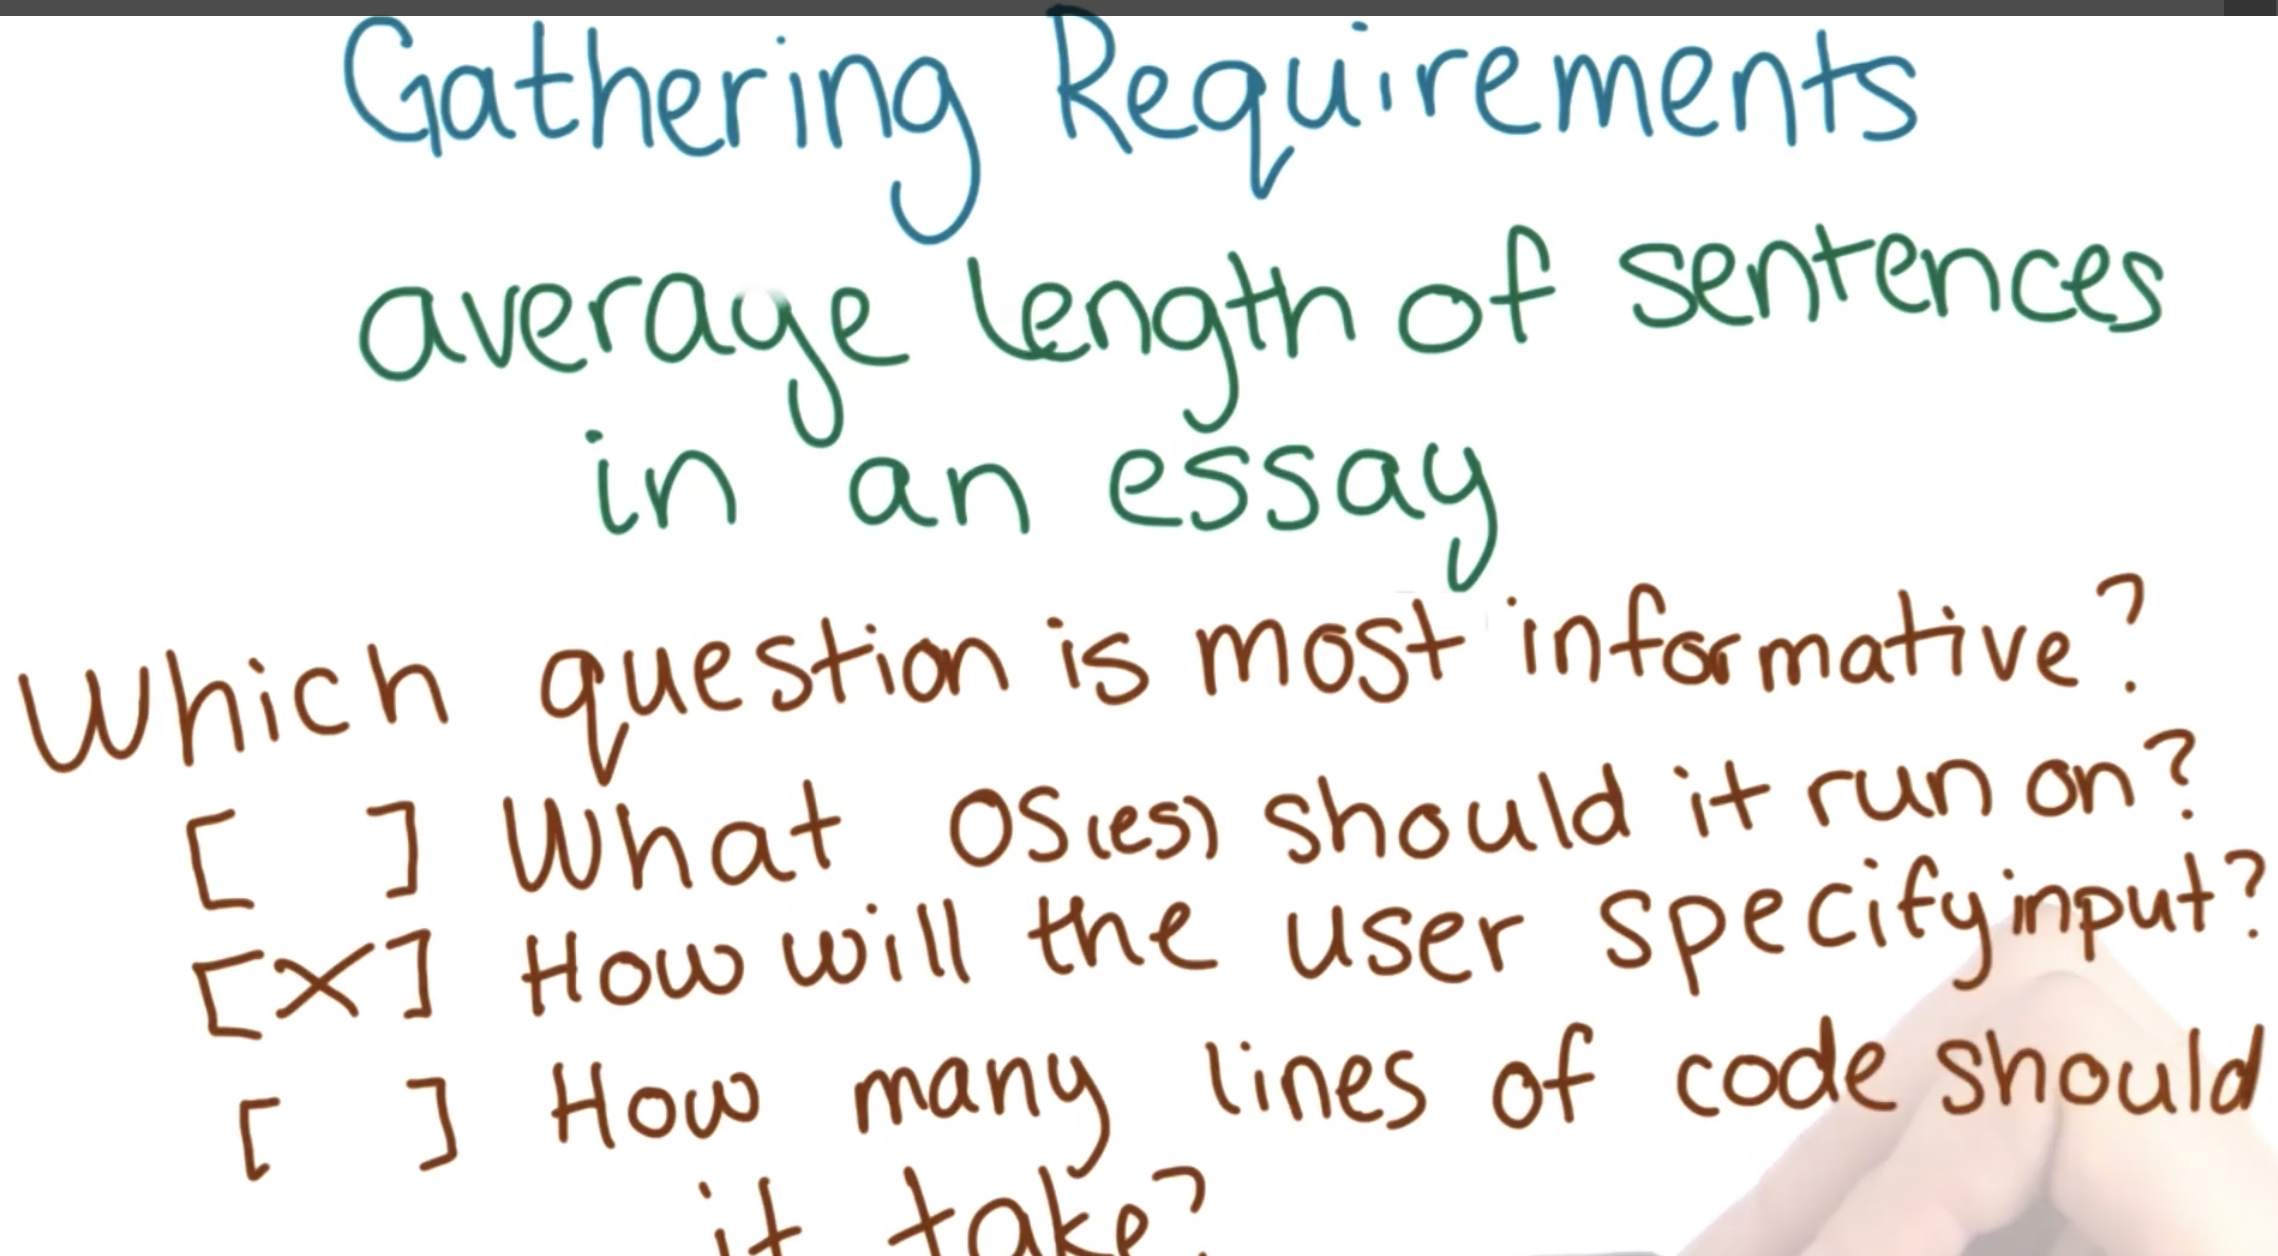 Gathering Requirements
average length of sentences
in an essay
Which question is most informative?
[ ] What OS(es) should it run on?
[X] How will the user specify input?
[ ] How many lines of code should
it take?